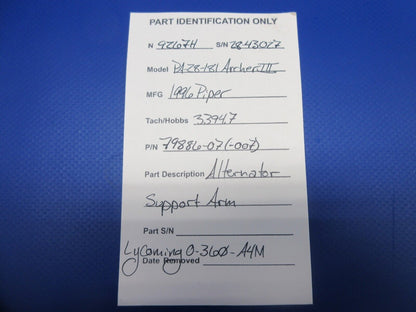 PART IDENTIFICATION ONLY
N 9267H S/N 2843027
Model PA-28-181 Archer III
MFG 1996 Piper
Tach/Hobbs 3394.7
P/N 79886-07 (-007)
Part Description Alternator
Support Arm
Part S/N
Lycoming O-360-A4M
Date Removed